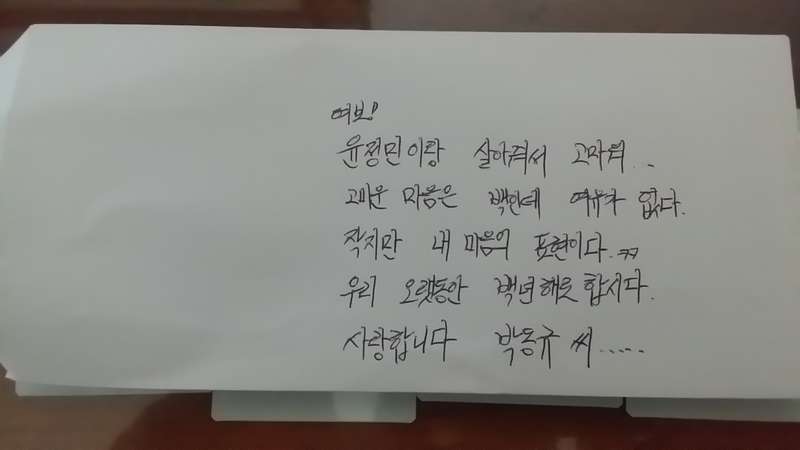 여보!!
윤정민이랑 살아줘서 고마워...
고마운 마음은 백인데 여유가 없다.
작지만 내 마음의 표현이다. ㅋㅋ
우리 오랫동안 백년해롯 합시다.
사랑합니다 박동규 씨.....